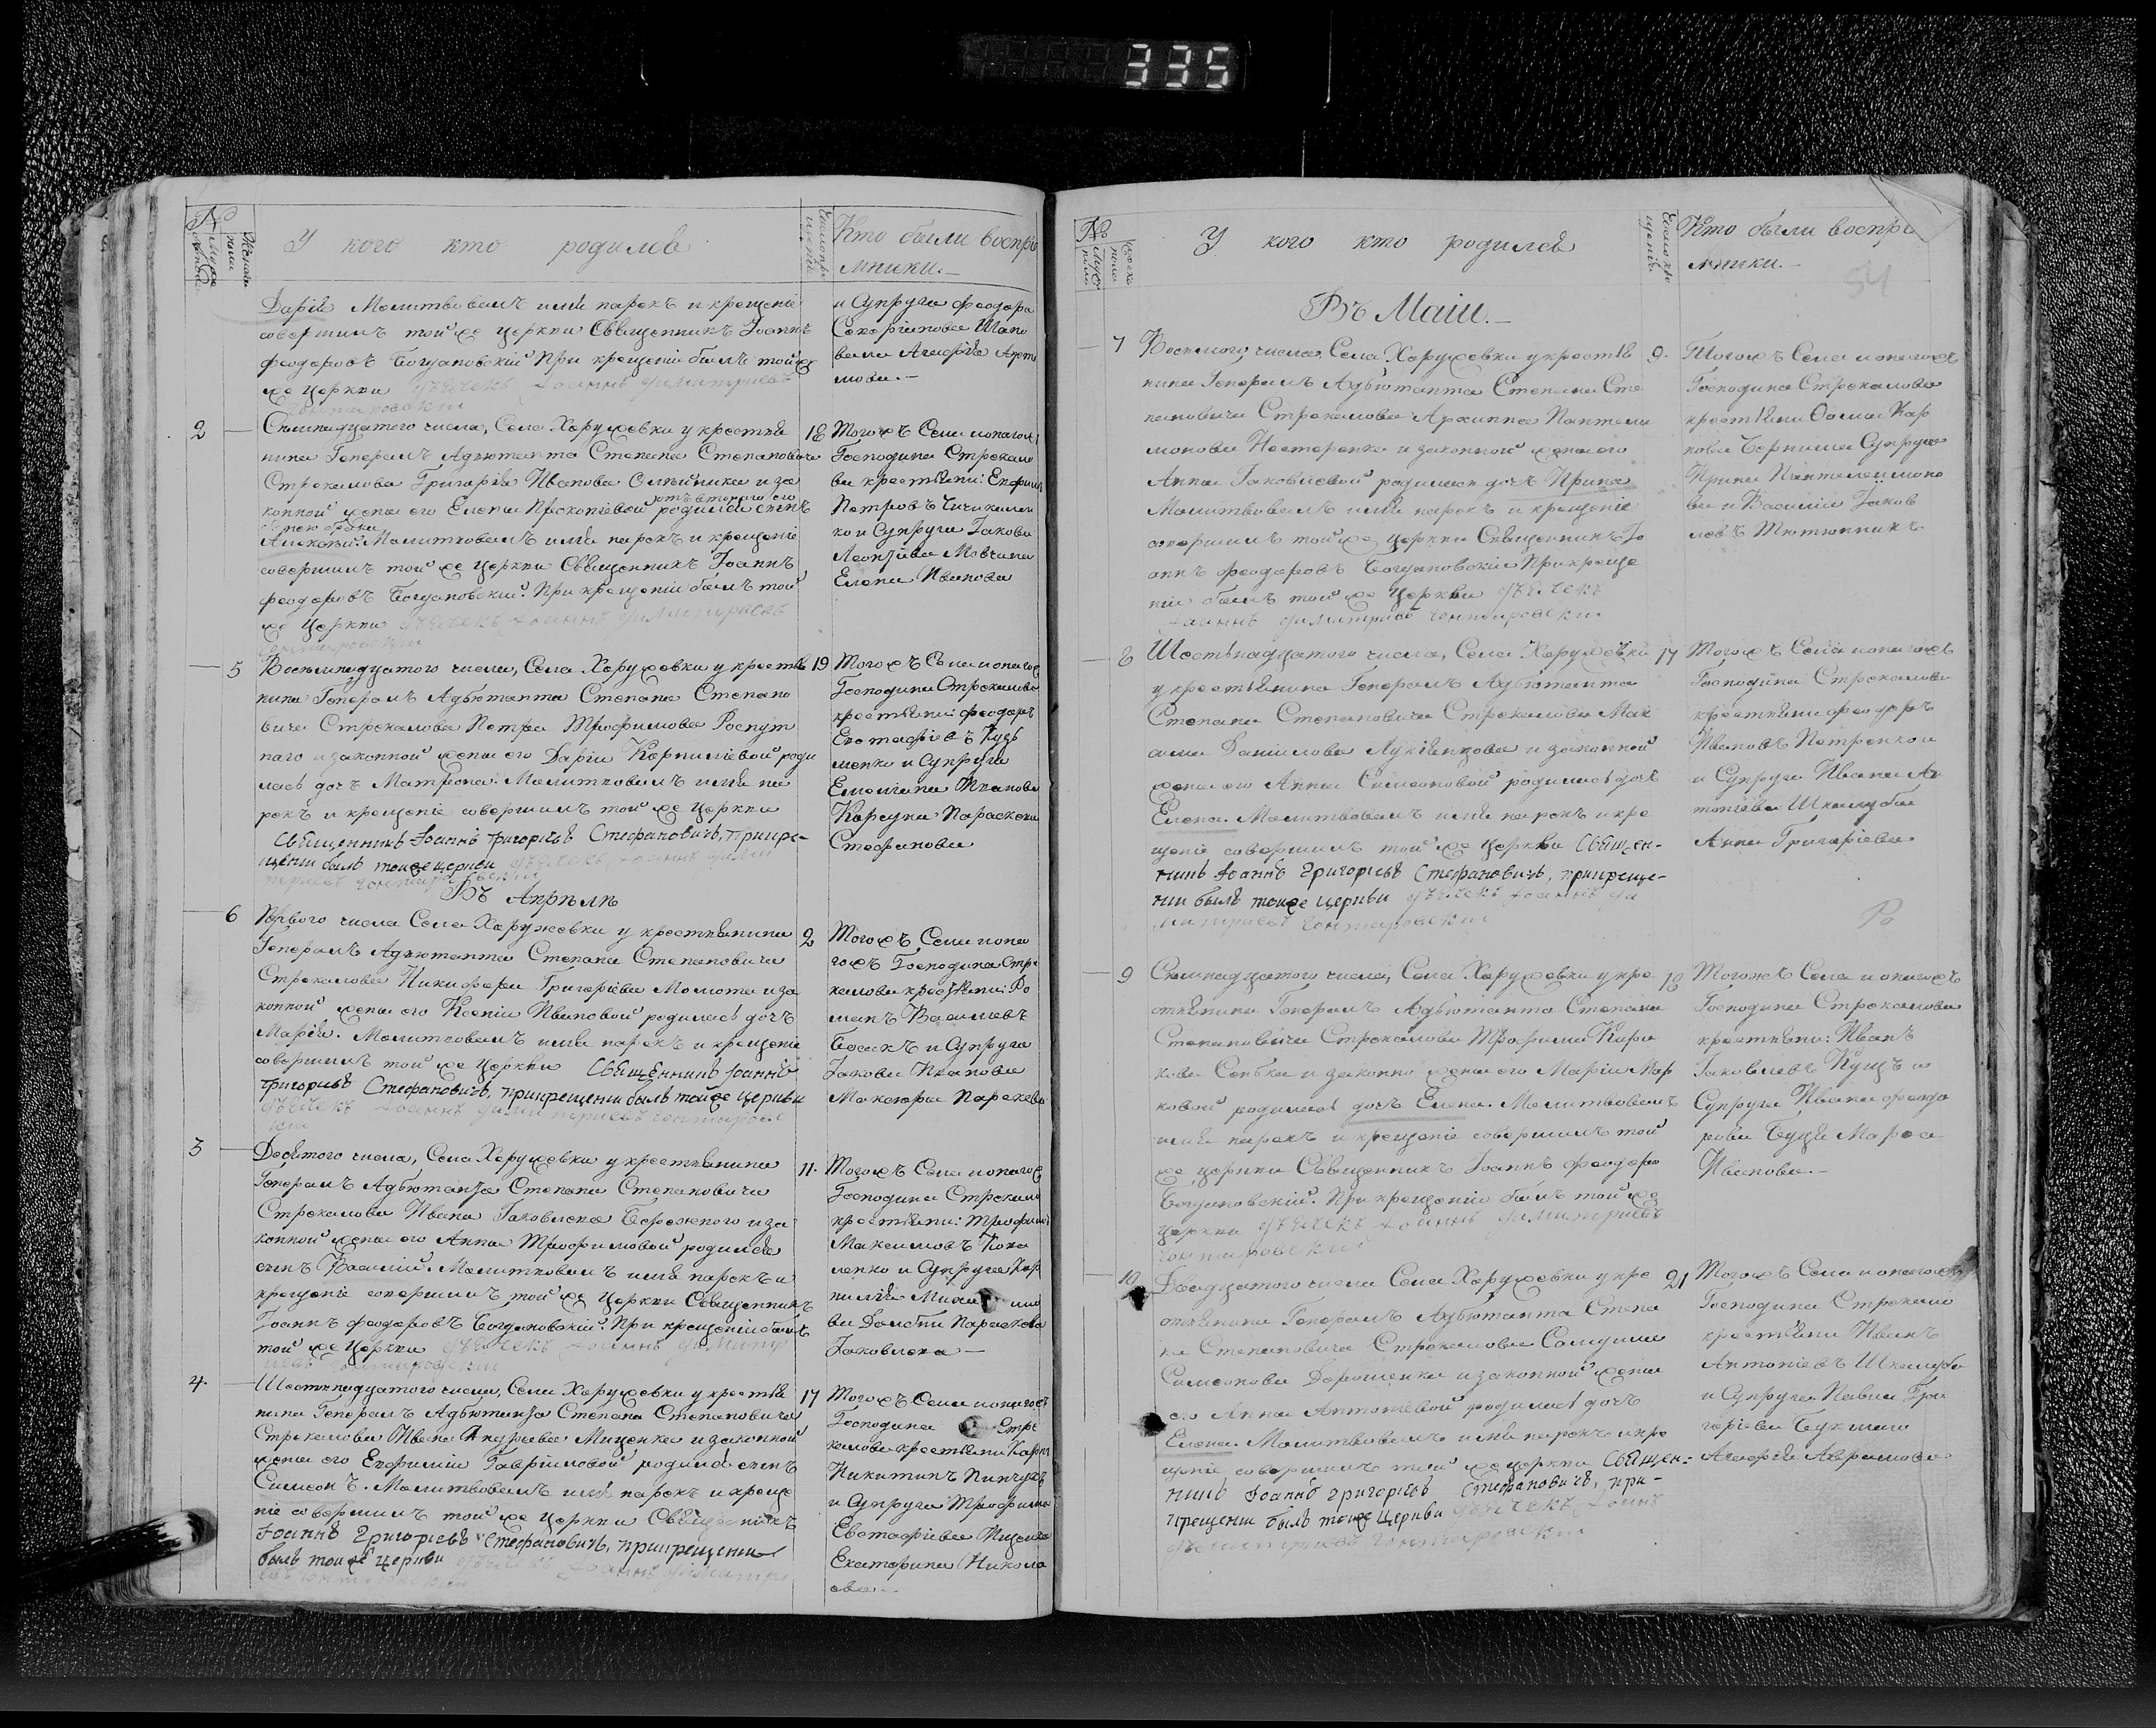 335
№
Мужеска
пола
Женска
У кого кто родился
Кто были воспріе
мники.
Дарія Молитвовалъ имя нарекъ и крещеніе
совершилъ той же церкви Священникъ Іоаннъ
Феодоровъ Богдановскій При крещеніи былъ той
же церкви дьячекъ Іоаннъ Димитріевъ
Гонтаровскій
и Супруга Феодора
Агафія
2
Семнадцатого числа, Села Харужевки у крестья
нина Генералъ Адъютанта Степана Степановича
Стрекалова Григорія Иванова Олейника и за
конной жены его Елены Прокопіевой родился сынъ
отъ втораго его
брака
Алексій. Молитвовалъ имя нарекъ и крещеніе
совершилъ той же церкви Священникъ Іоаннъ
Феодоровъ Богдановскій. При крещеніи былъ той
же церкви дьячекъ Іоаннъ Димитріевъ
Гонтаровскій
18
Тогожъ Села и онагожъ
Господина Стрекало
ва крестьяни: Ефимъ
Петровъ
ко и Супруга Іакова
Леонтіева Мовчана
Елена Иванова
5
Восемнадцатого числа, Села Харужевки у крестья
нина Генералъ Адъютанта Степана Степано
вича Стрекалова Петра Трофимова Распут
наго и законной жены его Дарія Корниліевой роди
лась дочь Матрона. Молитвовалъ имя на
рекъ и крещеніе совершилъ той же церкви
Священникъ Іоаннъ Григорьевъ Стефановичъ, при кре-
щеніи былъ тойже церкви дьячекъ Іоаннъ Дими
тріевъ Гонтаровскій
19
Тогожъ Села и онагож
Господина Стрекалова
крестьяни: Феодоръ
Евстафіевъ Кузь
менко и Супруга
Емеліана Иванова
Параскева
Стефанова
Въ Апрѣлѣ
6
Первого числа Села Харужевки у крестьянина
Генералъ Адъютанта Степана Степановича
Стрекалова Никифора Григоріева Момота и за
конной жены его Ксенія Ивановой родилась дочь
Марія. Молитвовалъ имя нарекъ и крещеніе
совершилъ той же церкви Священникъ Іоаннъ
Григорьевъ Стефановичъ, при крещеніи былъ тойже церкви
дьячекъ Іоаннъ Димитріевъ Гонтаровс
кій
2
Тогожъ Села и она
гожъ Господина Стре
калова крестьяни: Ро
манъ Васильевъ
и Супруга
Іакова Иванова
Параскева
3
Десятого числа, Села Харужевки у крестьянина
Генералъ Адъютанта Степана Степановича
Стрекалова Ивана Іаковлева Бережного и за
конной жены его Анна Трофимовой родился
сынъ Василій. Молитвовалъ имя нарекъ и
крещеніе совершилъ той же церкви Священникъ
Іоаннъ Феодоровъ Богдановскій. При крещеніи былъ
той же церкви дьячекъ Іоаннъ Димитр
іевъ Гонтаровскій
11.
Тогожъ Села и онагож
Господина Стрекало
крестьяни: Трофимъ
Максимовъ Кова
ленко и Супруга
Параскева
Іаковлева —
4.
Шестнадцатого числа, Села Харужевки у крестья
нина Генералъ Адъютанта Степана Степановича
Стрекалова Ивана Андреева Мищенка и законной
жены его Евфиміи Гавріиловой родился сынъ
Симеонъ. Молитвовалъ имя нарекъ и креще
ніе совершилъ той же церкви Священникъ
Іоаннъ Григорьевъ Стефановичъ, при крещеніи
былъ тойже церкви дьячекъ Іоаннъ Димитрі
евъ Гонтаровскій
17
Тогожъ Села и онагожъ
Господина Стре
калова крестьяни Карпъ
Никитинъ Пинчукъ
и Супруга Трофима
Евстафіева Мищенка
Екатерина Никола
ева.—
№
У кого кто родился
Кто были воспріе
мники.
54
Въ Маіи.—
7
Восьмого числа, Села Харужевки у крестья
нина Генералъ Адъютанта Степана Сте
пановича Стрекалова Архиппа Пантели
монова Нестеренка и законной жены его
Анна Іаковлевой родилась дочь Ирина
Молитвовалъ имя нарекъ и крещеніе
совершилъ той же церкви Священникъ Іо
аннъ Феодоровъ Богдановскій При креще
ніи былъ той же церкви дьячекъ
Іоаннъ Димитріевъ Гонтаровскій
9.
Тогожъ Села и онагожъ
Господина Стрекалова
крестьяни Ѳома Кар
повъ Супруга
Ирина Пантелеимоно
ва и Василій Іаков
левъ Тютюнникъ
8
Шестьнадцатого числа, Села Харужевки
у крестьянина Генералъ Адъютанта
Степана Степановича Стрекалова Мак
сима Даниилова Лукіянцова и законной
жены его Анна Симеоновой родилась дочь
Елена. Молитвовалъ имя нарекъ и кре
щеніе совершилъ той же церкви Священ-
никъ Іоаннъ Григорьевъ Стефановичъ, при креще-
ніи былъ тойже церкви дьячекъ Іоаннъ Ди
митріевъ Гонтаровскій
17
Тогожъ Села и онагожъ
Господина Стрекалова
крестьяни Феодоръ
Ивановъ Петренко и
и Супруга Ивана Ан
тоніева Шкалуба
Анна Григоріева
9
Семнадцатого числа, Села Харужевки у кре
стьянина Генералъ Адъютанта Степана
Степановича Стрекалова Трофима Кири
кова Слѣпка и законно жены его Марія Мар
ковой родилась дочь Елена. Молитвовалъ
имя нарекъ и крещеніе совершилъ той
же церкви Священникъ Іоаннъ Феодоро
Богдановскій. При крещеніи былъ той же
церкви дьячекъ Іоаннъ Димитріевъ
Гонтаровскій
18
Тогожъ Села и онагожъ
Господина Стрекалова
крестьяни: Иванъ
Іаковлевъ Кущъ и
Супруга Ивана Феодо
рова
Иванова.—
10
Двадцатого числа Села Харужевки у кре
стьянина Генералъ Адъютанта Степа
на Степановича Стрекалова
Симеонова Дорошенка и законной жены
его Анна Антоніевой родилась дочь
Елена. Молитвовалъ имя нарекъ и кре
щеніе совершилъ той же церкви Священ-
никъ Іоаннъ Григорьевъ Стефановичъ, при-
крещеніи былъ тойже церкви дьячекъ Іоаннъ
Димитріевъ Гонтаровскій
21
Тогожъ Села и онагожъ
Господина Стрекало
крестьяни Иванъ
Антоніевъ Шкалуба
и Супруга Павла Гри
горіева
Агафія Аврамова